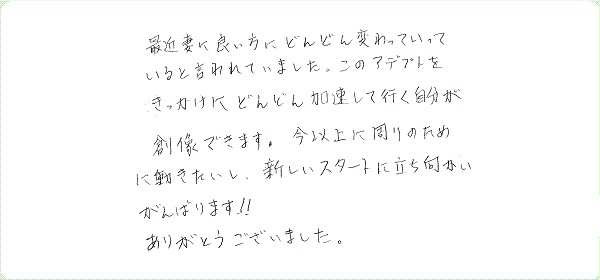 最近妻に良い方にどんどん変わっていって
いると言われていました。このアデプトを
きっかけにどんどん加速して行く自分が
創像できます。今以上に周りのため
に動きたいし、新しいスタートに立ち向かい
がんばります!!
ありがとうございました。